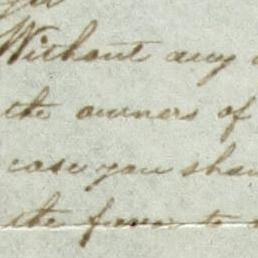 Without any
the owners of
case you shou
the favor to